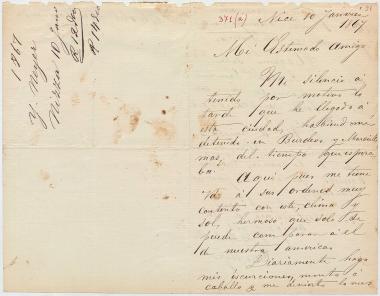 1867
Y. Meyer
Nizza 10 Janr
R 12 Dec
R 14 Dec
371 (a)
31
Nice 10 Janvier
1867
Mi Estimado Amigo
Mi silencio á
tenido por motivo lo
tarde que he llegado á
esta ciudad, habiendomé
detenido en Burdeos y Marsella
mas, del tiempo que espera
ba.
Aqui pues me tiene
Vd á sus ordenes muy
contento con este clima y
sol, hermoso que solo se
puede comparar á el
de nuestra america.
Diariamente hago
mis escurciones, monto á
caballo y me divierto lo mas